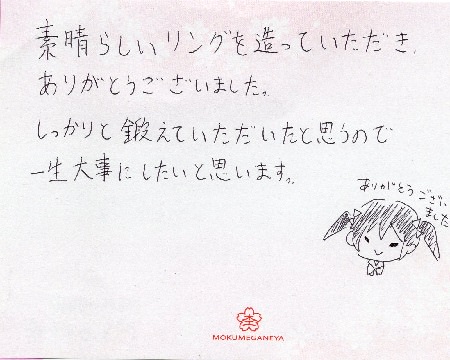 素晴らしいリングを造っていただき、
ありがとうございました。
しっかりと鍛えていただいたと思うので
一生大事にしたいと思います。
ありがとう
ござい
ました
MOKUMEGANEYA